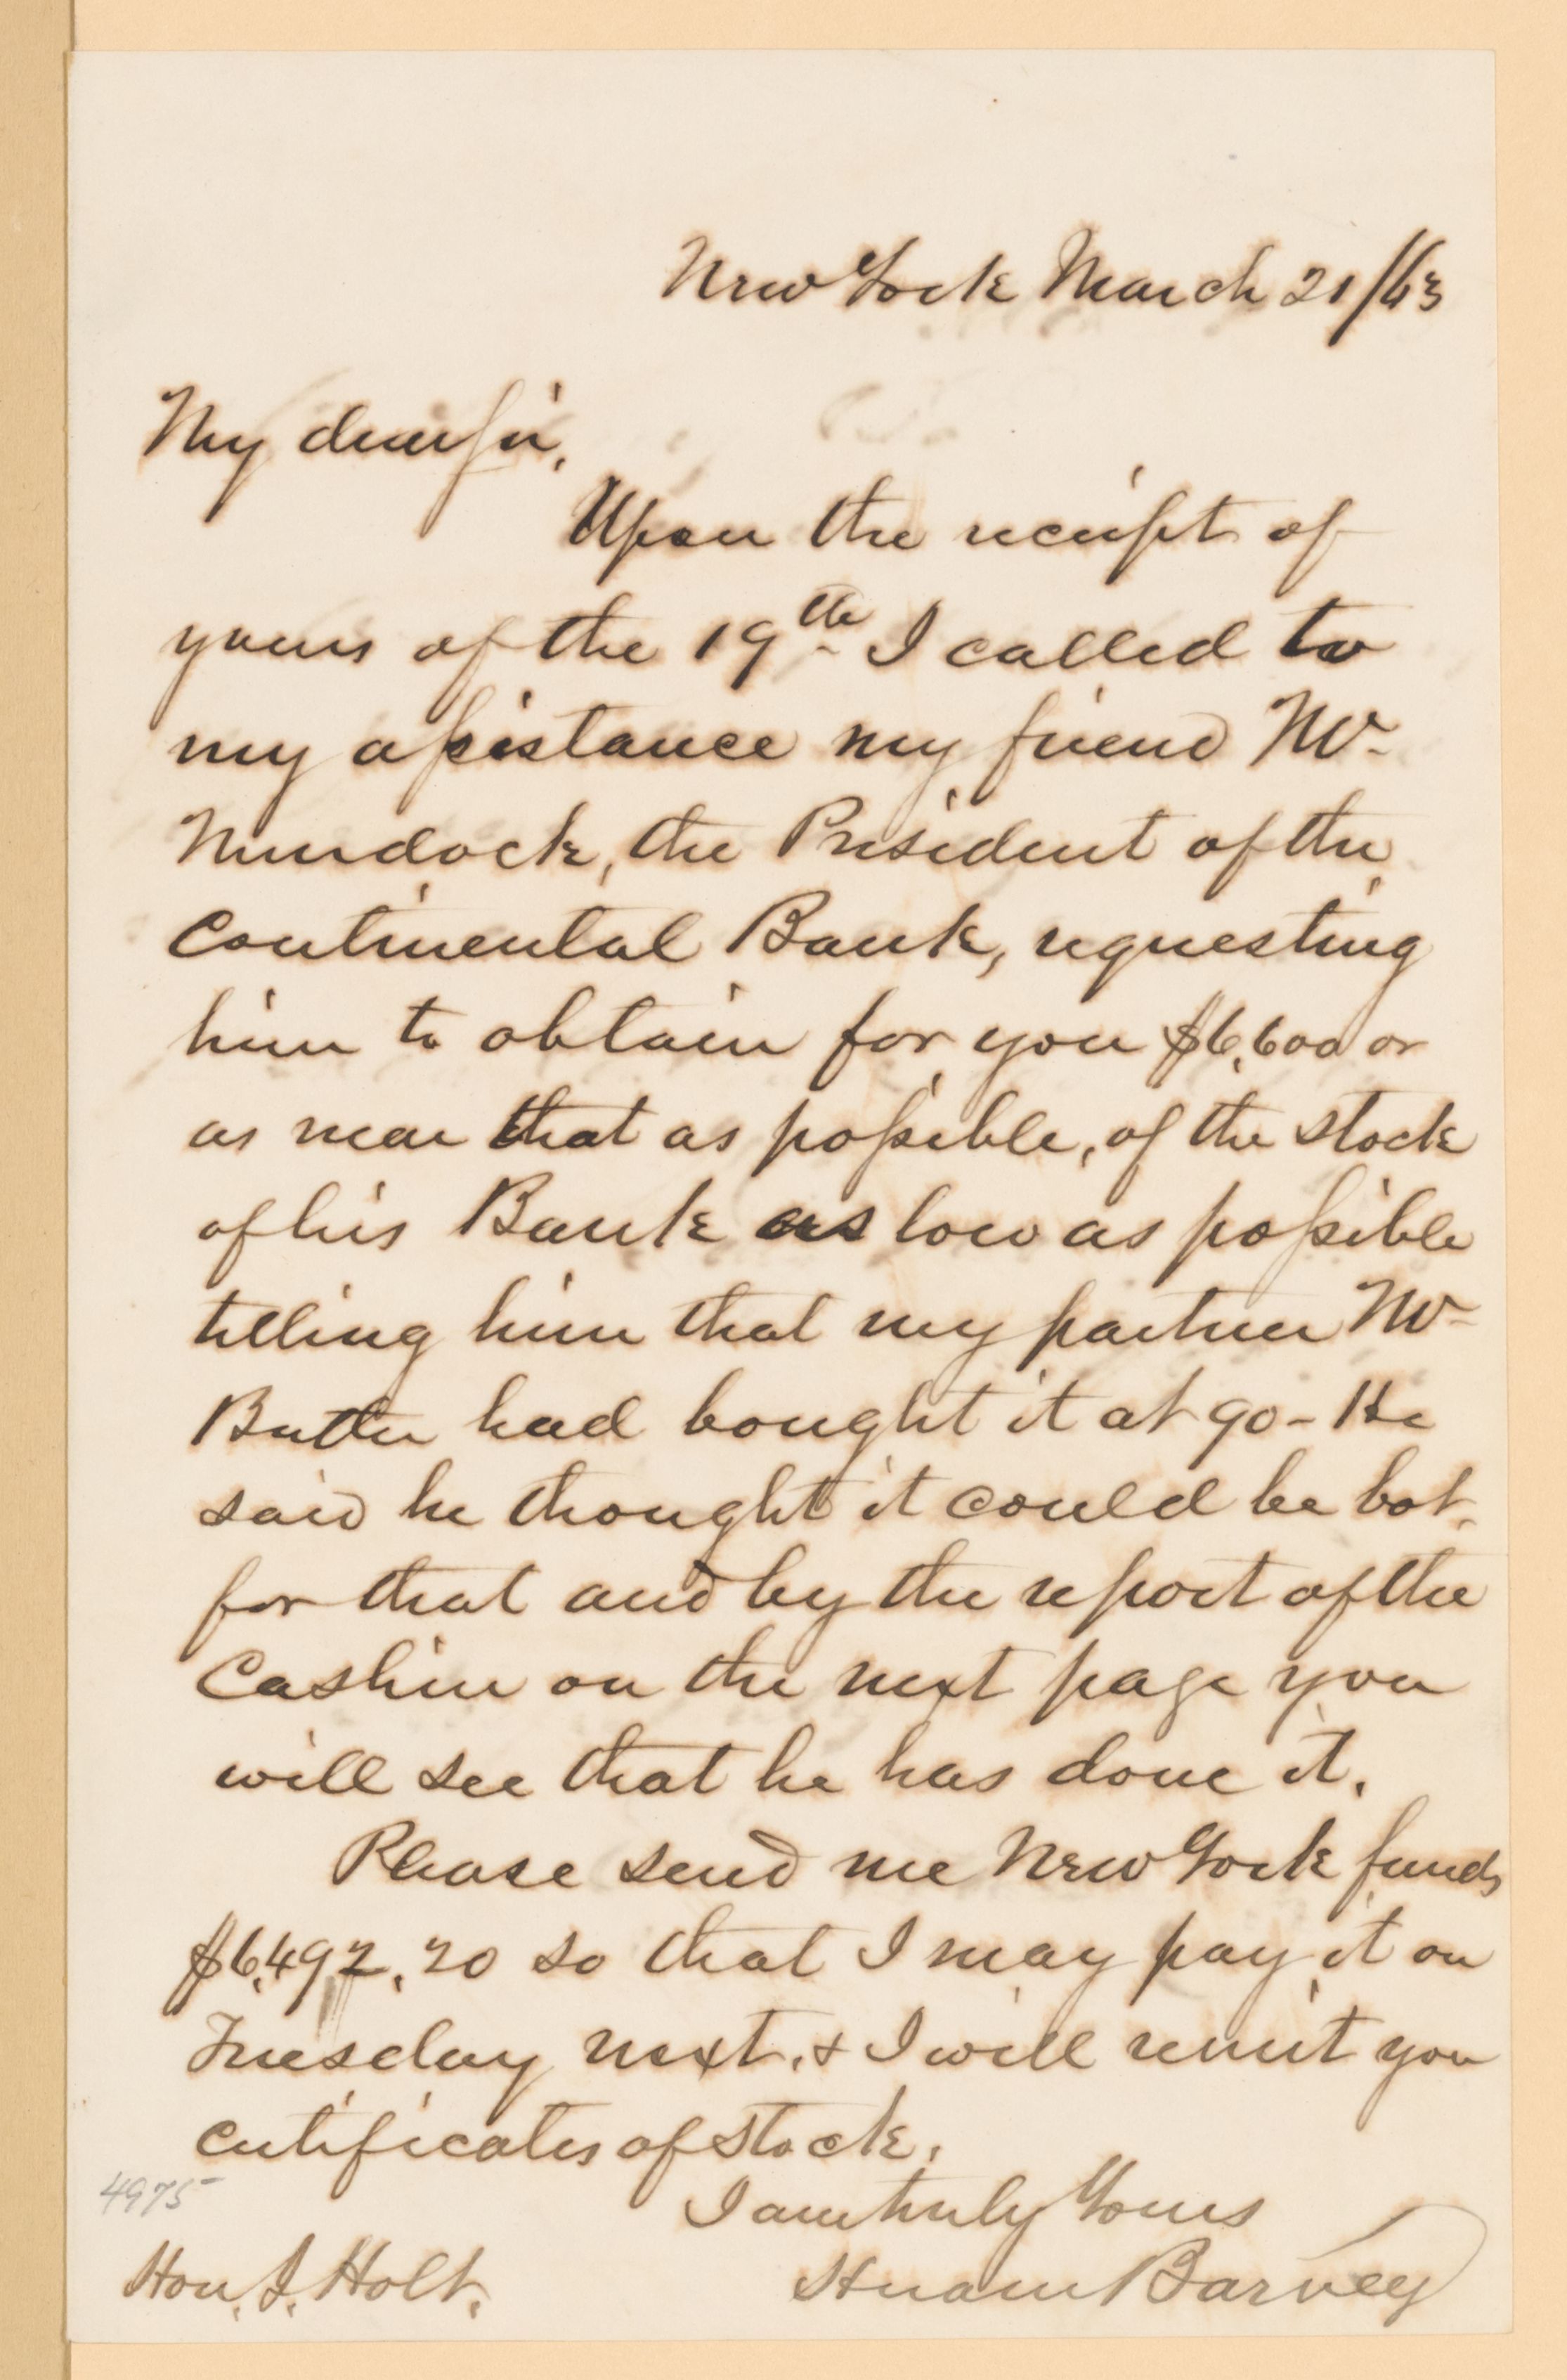 New York March 21/63
My dear Sir,
Upon the receipt of
yours of the 19th I called to
my assistance my friend Mr.
Murdock, the President of the
Continental Bank, requesting
him to obtain for you $6,600 or
as near that as possible, of the stock
of his Bank as low as possible
telling him that my partner Mr.
Butler had bought it at 90 - He
said he thought it could be bot.
for that and by the report of the
Cashier on the next page you
will see that he has done it.
Please send me New York funds
$6,492.20 so that I may pay it on
Tuesday next, & I will remit you
certificates of stock.
I am truly Yours
Hiram Barney
Hon. J. Holt.
4975